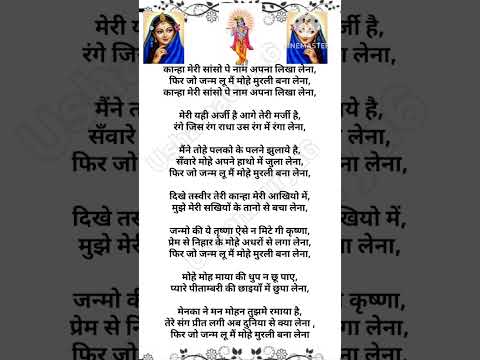 कान्हा मेरी सांसो पे नाम अपना लिखा लेना,
फिर जो जन्म लू मैं मोहे मुरली बना लेना,
कान्हा मेरी सांसो पे नाम अपना लिखा लेना,
मेरी यही अर्जी है आगे तेरी मर्जी है,
रंगे जिस रंग राधा उस रंग में रंगा लेना,
मैंने तोहे पलको के पलने झुलाये है,
सँवारे मोहे अपने हाथो में जुला लेना,
फिर जो जन्म लू मैं मोहे मुरली बना लेना,
दिखे तस्वीर तेरी कान्हा मेरी आखियो में,
मुझे मेरी सखियों के तानो से बचा लेना,
जन्मो की ये तृष्णा ऐसे न मिटे गी कृष्णा,
प्रेम से निहार के मोहे अधरों से लगा लेना,
फिर जो जन्म लू मैं मोहे मुरली बना लेना,
मोहे मोह माया की धुप न छू पाए,
प्यारे पीताम्बरी की छाइयाँ में छुपा लेना,
मेनका ने मन मोहन तुझमे रमाया है,
तेरे संग प्रीत लगी अब दुनिया से क्या लेना ,
फिर जो जन्म लू मैं मोहे मुरली बना लेना
INEMASTER
मेरी यही अ
रंगे जिस रंग
मैंने तोहे प
सँवारे मोहे
फिर जो जन्म
दिखे तस्वीर
मुझे मेरी स
जन्मो की ये
प्रेम से निहार
फिर जो जन्म
मर्जी है,
रंगा लेना,
लाये है,
ला लेना,
बना लेना,
आखियो में,
बचा लेना,
कृष्णा,
लगा लेना,
बना लेना,